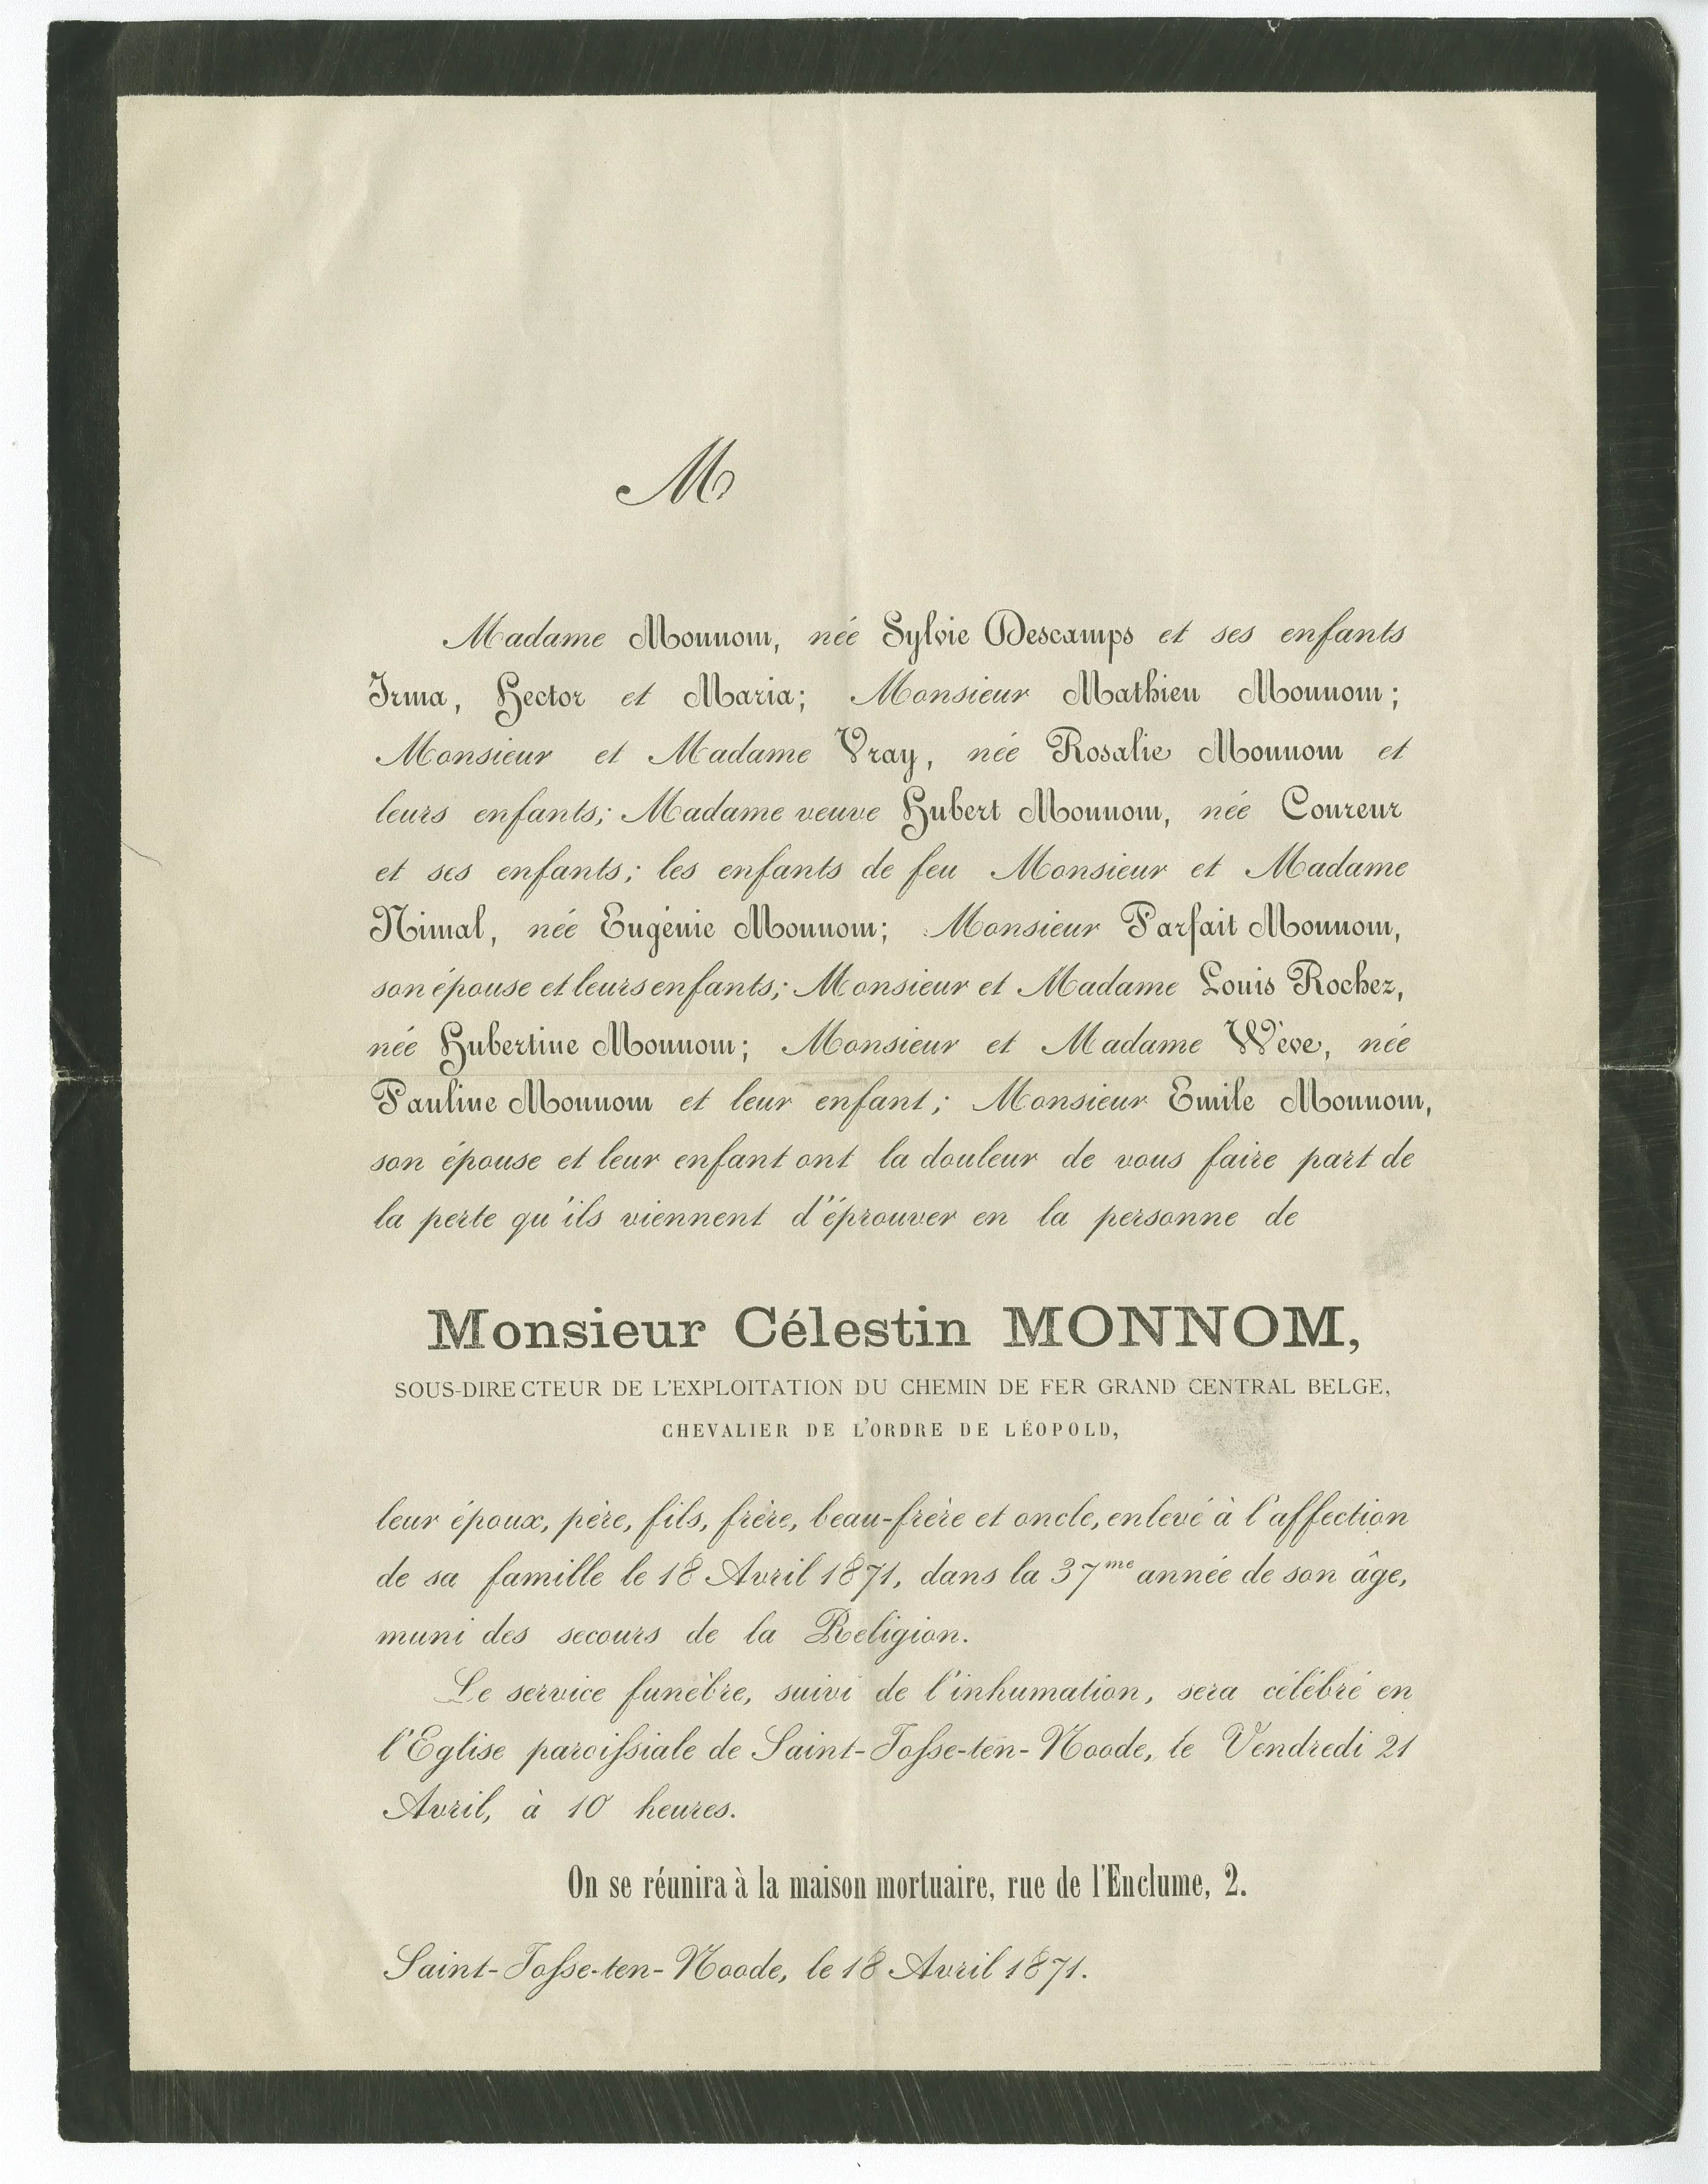 M
Madame Monnom, née Sylvie Descamps et ses enfants
Irma, Hector et Maria; Monsieur Mathieu Monnom;
Monsieur et Madame Vray, née Rosalie Monnom et
leurs enfants; Madame veuve Hubert Monnom, née Coureur
et ses enfants; les enfants de feu Monsieur et Madame
Nimal, née Eugénie Monnom; Monsieur Parfait Monnom,
son épouse et leurs enfants; Monsieur et Madame Louis Rochez,
née Hubertine Monnom; Monsieur et Madame Wève, née
Pauline Monnom et leur enfant; Monsieur Emile Monnom,
son épouse et leur enfant ont la douleur de vous faire part de
la perte qu'ils viennent d'éprouver en la personne de
Monsieur Célestin MONNOM,
SOUS-DIRECTEUR DE L'EXPLOITATION DU CHEMIN DE FER GRAND CENTRAL BELGE,
CHEVALIER DE L'ORDRE DE LÉOPOLD,
leur époux, père, fils, frère, beau-frère et oncle, enlevé à l'affection
de sa famille le 18 Avril 1871, dans la 37me année de son âge,
muni des secours de la Religion.
Le service funèbre, suivi de l'inhumation, sera célébré en
l'Eglise paroissiale de Saint-Josse-ten-Noode, le Vendredi 21
Avril, à 10 heures.
On se réunira à la maison mortuaire, rue de l'Enclume, 2.
Saint-Josse-ten-Noode, le 18 Avril 1871.